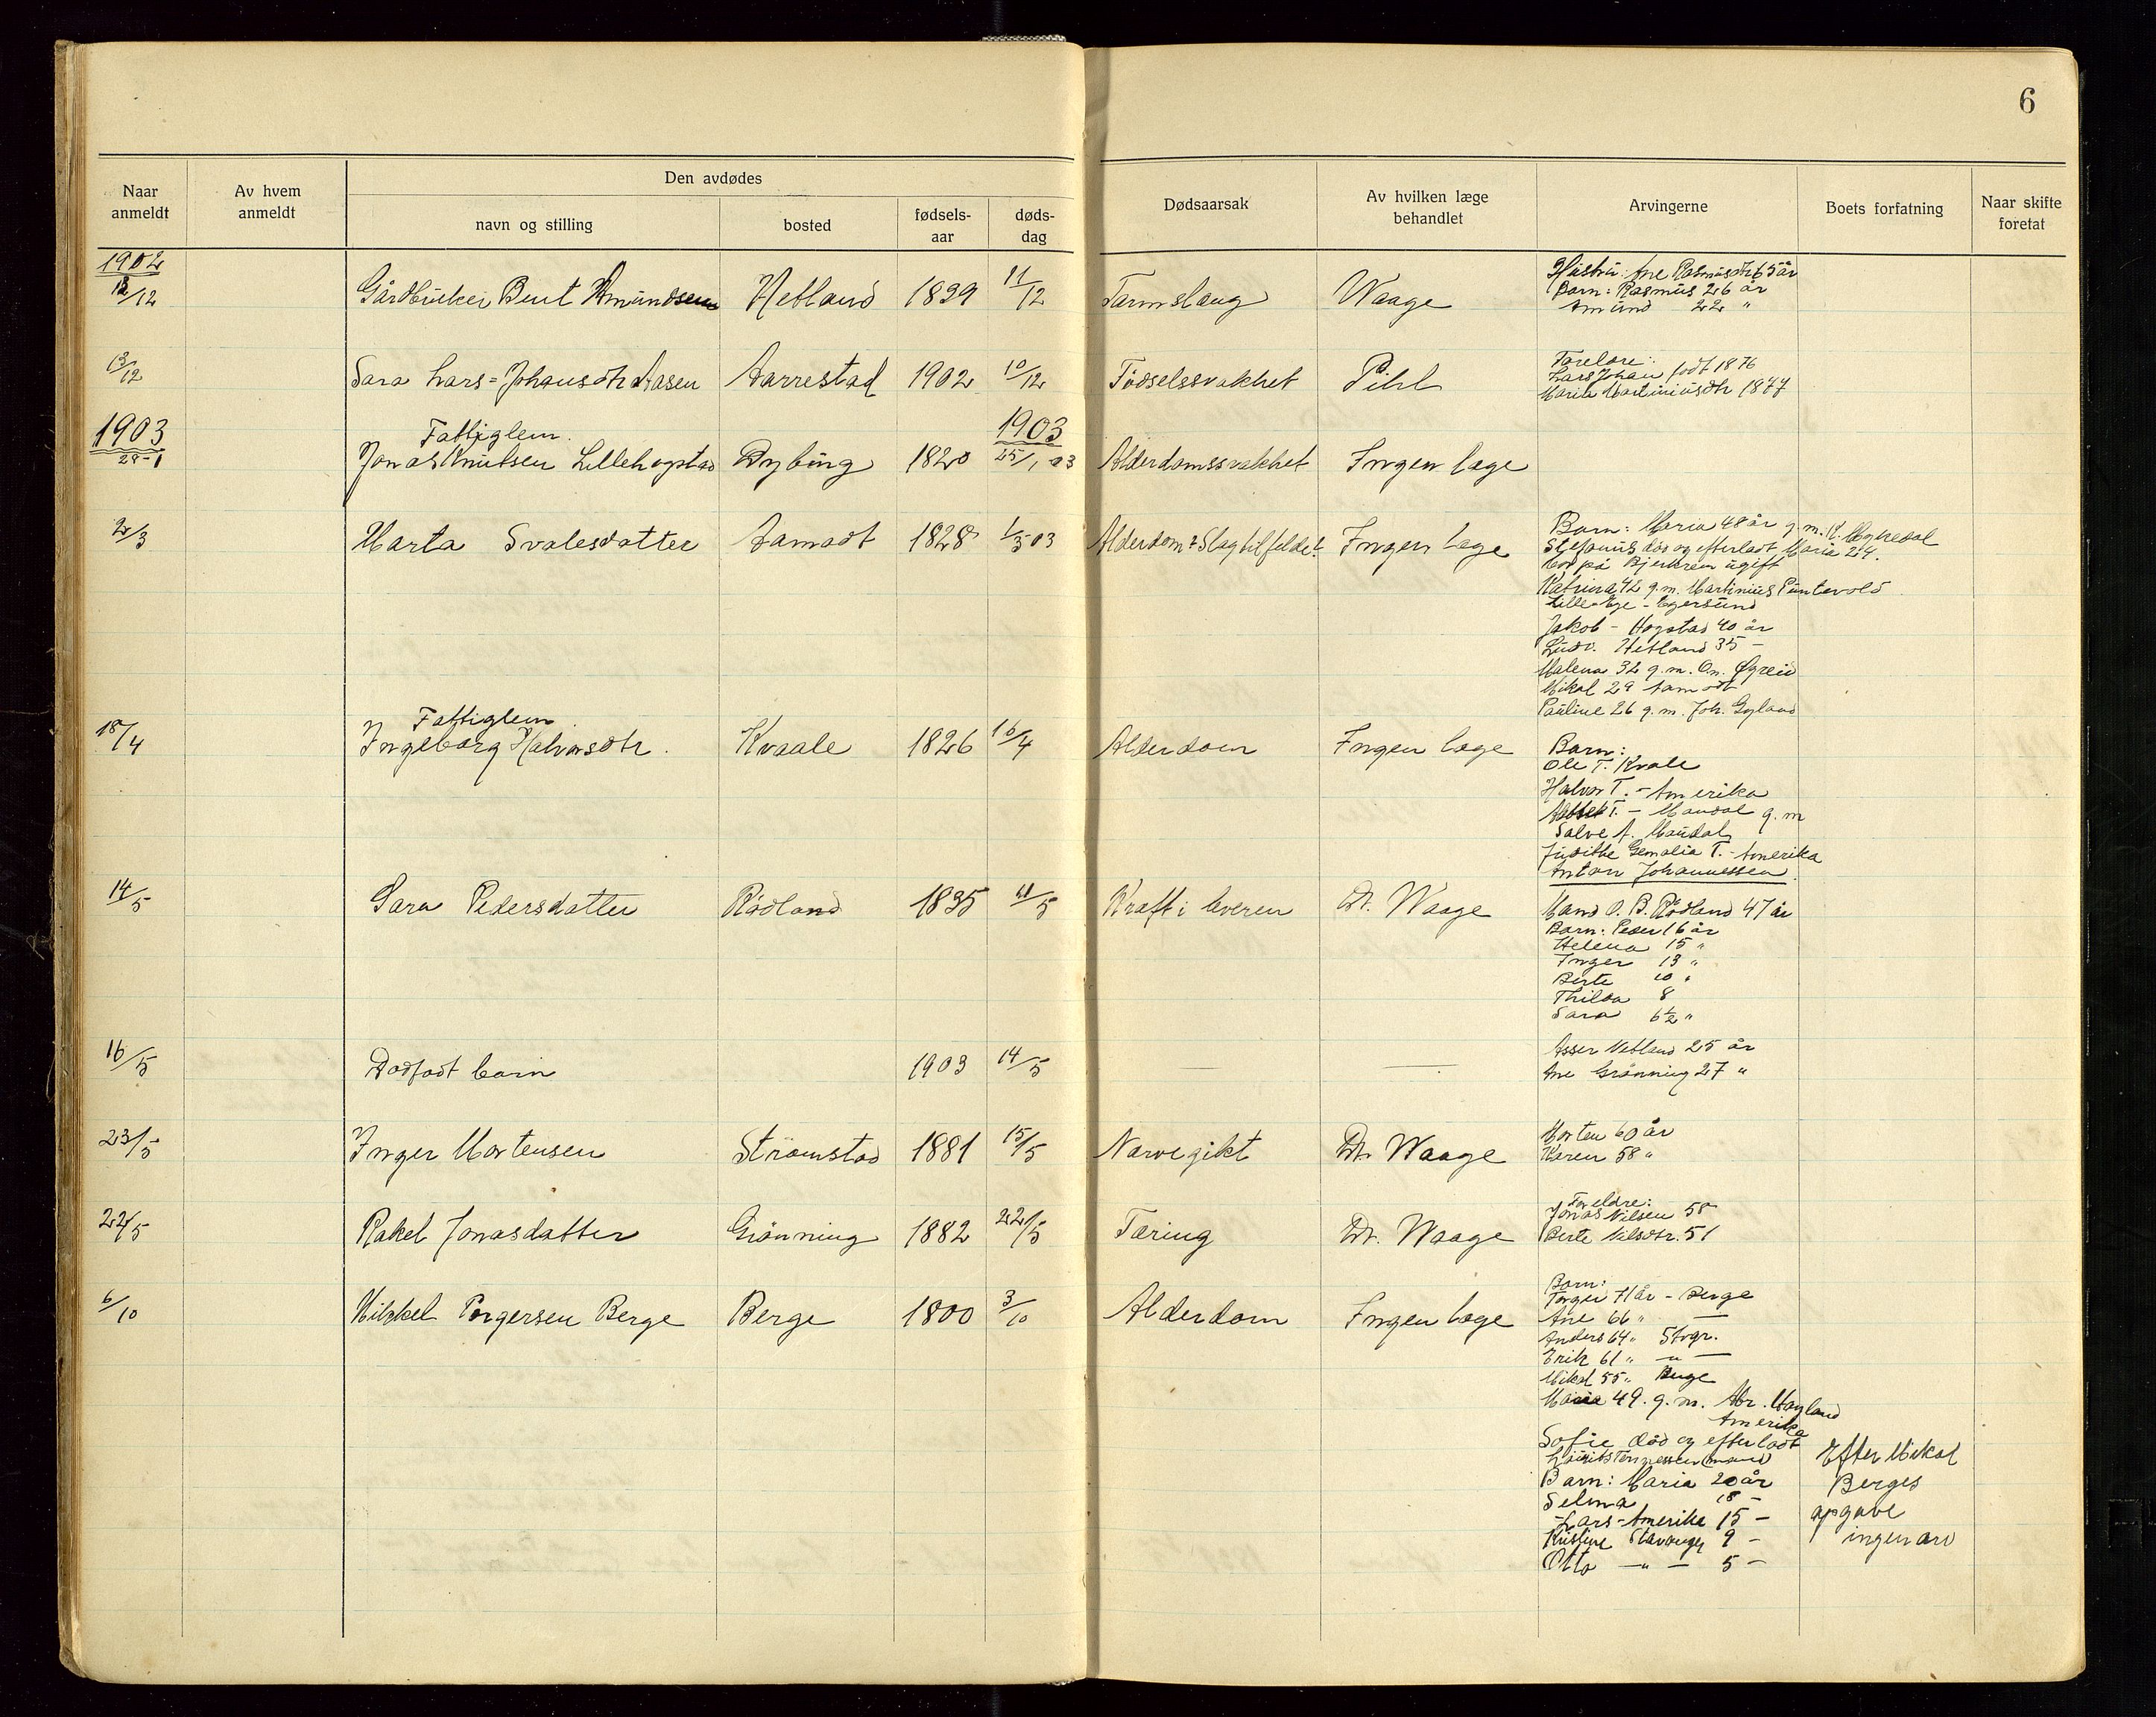 6
Naar anmeldt
Av hvem anmeldt
Den avdødes
navn og stilling
bosted
fødsels-aar
døds-dag
Dødsaarsak
Av hvilken læge behandlet
Arvingerne
Boets forfatning
Naar skifte foretat
1902
12/12 Gårdbruker Bent Amundsen Hetland 1839 11/12 Tarmslaug Waage
Hustru: Ane Rasmusdtr 65 år
Barn: Rasmus 26 år
Amund 22 "
13/12 Sara Lars-Johansdtr Aasen Aarrestad 1902 10/12 Födselssvakhet Pihl
Forelöre:
Lars Johan födt 1876
Maria Martiniusdtr 1877
1903 1903
Fattiglem
29-1 Jonas Knutsen Lillehogstad Dybing 1820 25/1 03 Alderdomssvakhet Ingen læge
2/3 Marta Svalesdatter Aamodt 1828 1/3 03 Alderdom? Slagtilfelde? Ingen læge
Barn: Maria 48 år g.m. K. Mydal
Stefanus död og efterladt Maria 24.
bor på Bjerkrem ugift
Katrina 42 g.m. Martinius Puntevold
Lille-Ege - Egersund
Jakob - Hogstad 40 år
Ludv. Hetland 35 -
Malena 32 g.m. On. Øgreid
Mikal 29 Aamodt
Pauline 26 g.m. Joh. Gyland
Fattiglem
18/4 Ingeborg Halvorsdtr. Kvaale 1826 16/4 Alderdom Ingen læge
Barn:
Ole T. Kvale
Halvor T. - Amerika
T. - Maudal g.m
Salve A. Maudal
Judithe Gemalia T. - Amerika
Anton Johannessen
14/5 Sara Pedersdatter Rödland 1835 11/5 Kræft i leveren Dr. Waage
Mand O. B. Rödland 47 år
Barn: Peder 16 år
Helena 15 "
Inger 13 "
Berte 10 "
Thilda 8
Sara 6½ "
16/5 Dödfödt barn 1903 14/5 — —
Asser Vetland 25 år
Ane Grönning 27 "
23/5 Inger Mortensen Strömstad 1881 15/5 Nervegikt Dr. Waage
Morten 60 år
Karen 58 "
22/5 Rakel Jonasdatter Grönning 1882 22/5 Tæring Dr. Waage
Foreldre:
Jonas Nilsen 58
Berte Nilsdtr. 51
6/10 Mikkel Torgersen Berge Berge 1800 3/10 Alderdom Ingen læge
Barn:
Torger 71 år - Berge
Ane 66 " —
Anders 64 " Stvgr.
Erik 61 " — " —
Mikal 55 " Berge
Maria 49. g.m. Abr. Hayland
Amerika
Sofie död og efterladt
Laurits Tønnessen (mand)
Barn: Maria 20 år
Selma 18 -
Lars - Amerika 15 -
Kristine Stavanger 9 -
Otto — " — 5 -
Efter Mikal
Berges
opgave
ingen arv